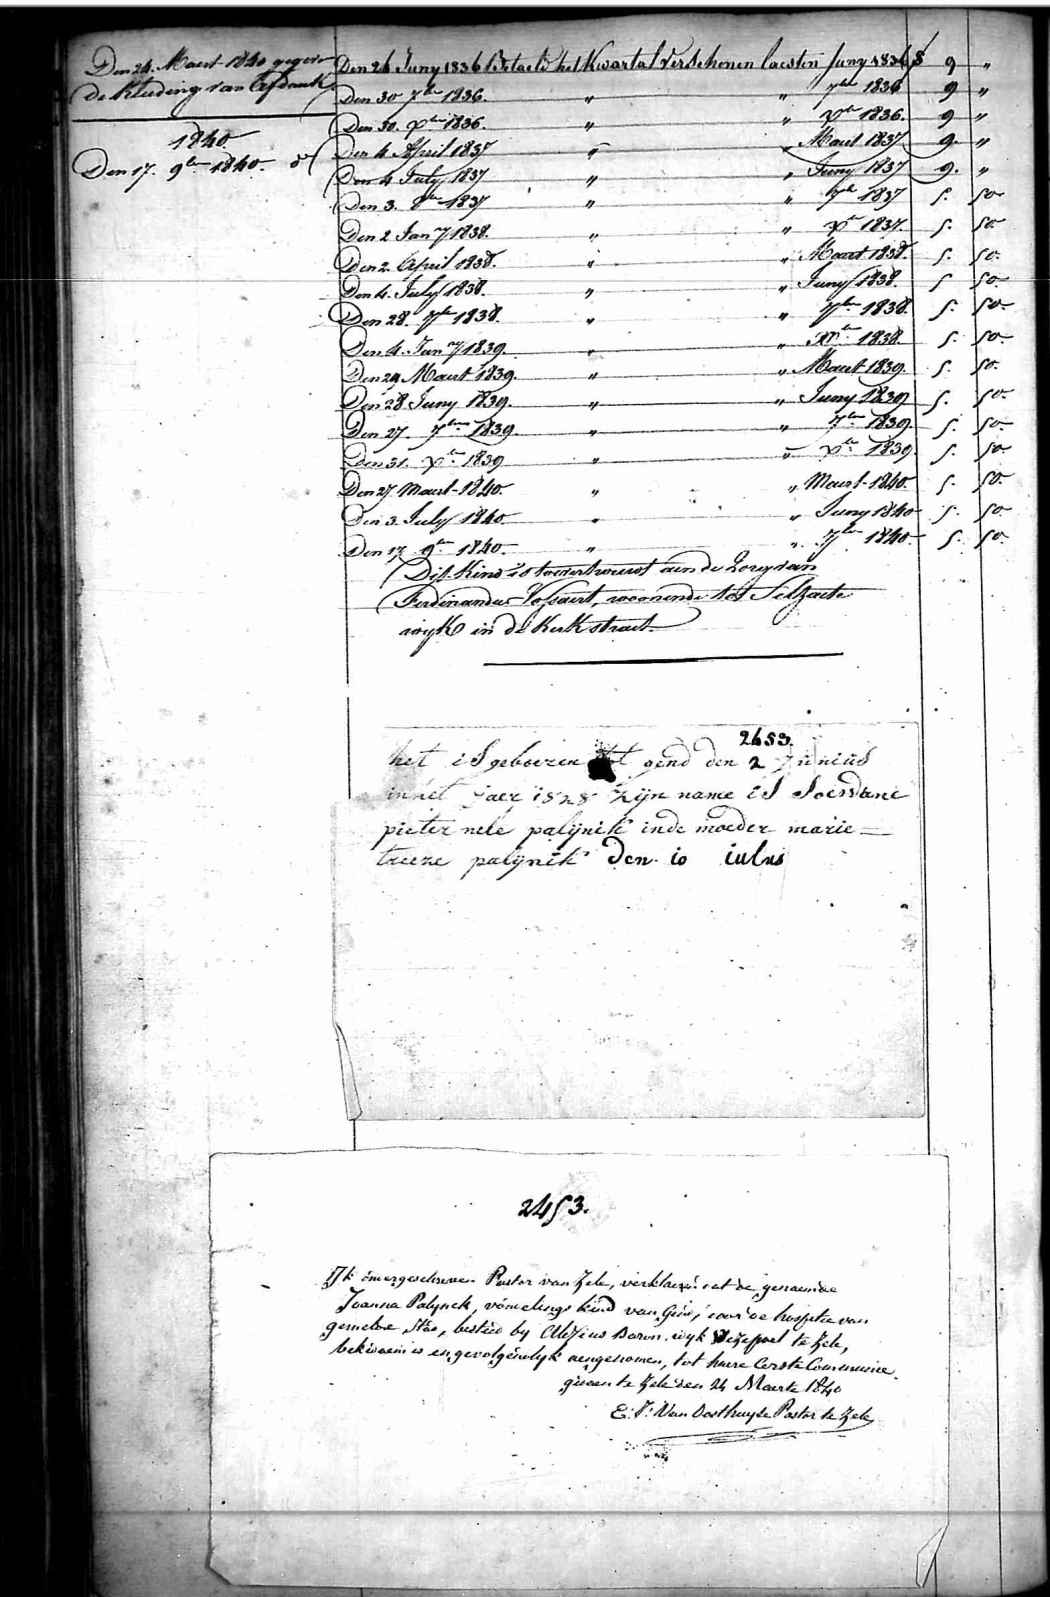 Den 24. Maert 1840 gegeven
de kleeding van
1840
Den 17. 9ber 1840. do
Den 26 Juny 1836 Betaeld het Kwartal Verschenen laesten Juny 1836 f 9 "
Den 30 7ber 1836. " " 7ber 1836 9 "
Den 30. Xber 1836. " " Xber 1836. 9 "
Den 4 April 1837 " " Maert 1837 9. "
Den 4 July 1837 " " Juny 1837 9. "
Den 3. 8ber 1837 " " 7ber 1837 5. 50
Den 2 Jany 1838. " " Xber 1837. 5. 50
Den 2. April 1838. " " Maert 1838. 5. 50.
Den 4. July 1838. " " Juny 1838. 5 50
Den 28. 7ber 1838. " " 7ber 1838. 5. 50.
Den 4. Jany 1839. " " Xber 1838. 5. 50.
Den 29 Maert 1839. " " Maert 1839. 5. 50.
Den 28 Juny 1839. " " Juny 1839 5. 50.
Den 27. 7ber 1839. " " 7ber 1839. 5. 50.
Den 31. Xber 1839 " " Xber 1839. 5. 50
Den 27 Maert 1840. " " Maert 1840. 5. 50.
Den 3. July 1840. " " Juny 1840 5. 50
Den 17 9ber 1840. " " 7ber 1840 5. 50.
Dit Kind is toevertrouwt aen de Zorg van
Ferdinandus Vossaert, woonende tot Selzaete
wyk in de Kerkstraet.
2653.
het is geboezen tot gend den 2 Junius
in het jaer 1828 zijn name is Joesdane
pieter nele palijnck inde moeder marie
treeze palijnck den 10 iulus
2453.
Ik ondergeschreven Pastor van Zele, verklaere dat de genaemde
Joanna Palynck, vondelings kind van Gend, door de hospitie van
gemelde Stad, besteed by Alezius Baron wyk te Zele,
bekwaem is en gevolgentlyk aengenomen, tot haere Eerste Communie.
gegeven te Zele den 24 Maerte 1840
E. J. Van Oosthuyse Pastor te Zele